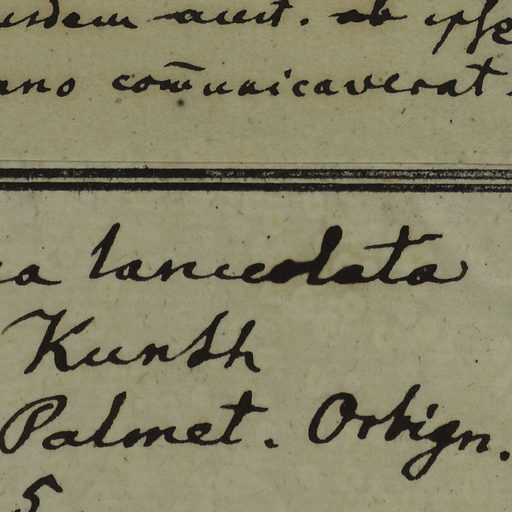 auct. ab ipse
ano com̄unicaverat.
a lanceolata
Kunth
Palmet. Orbign.
5